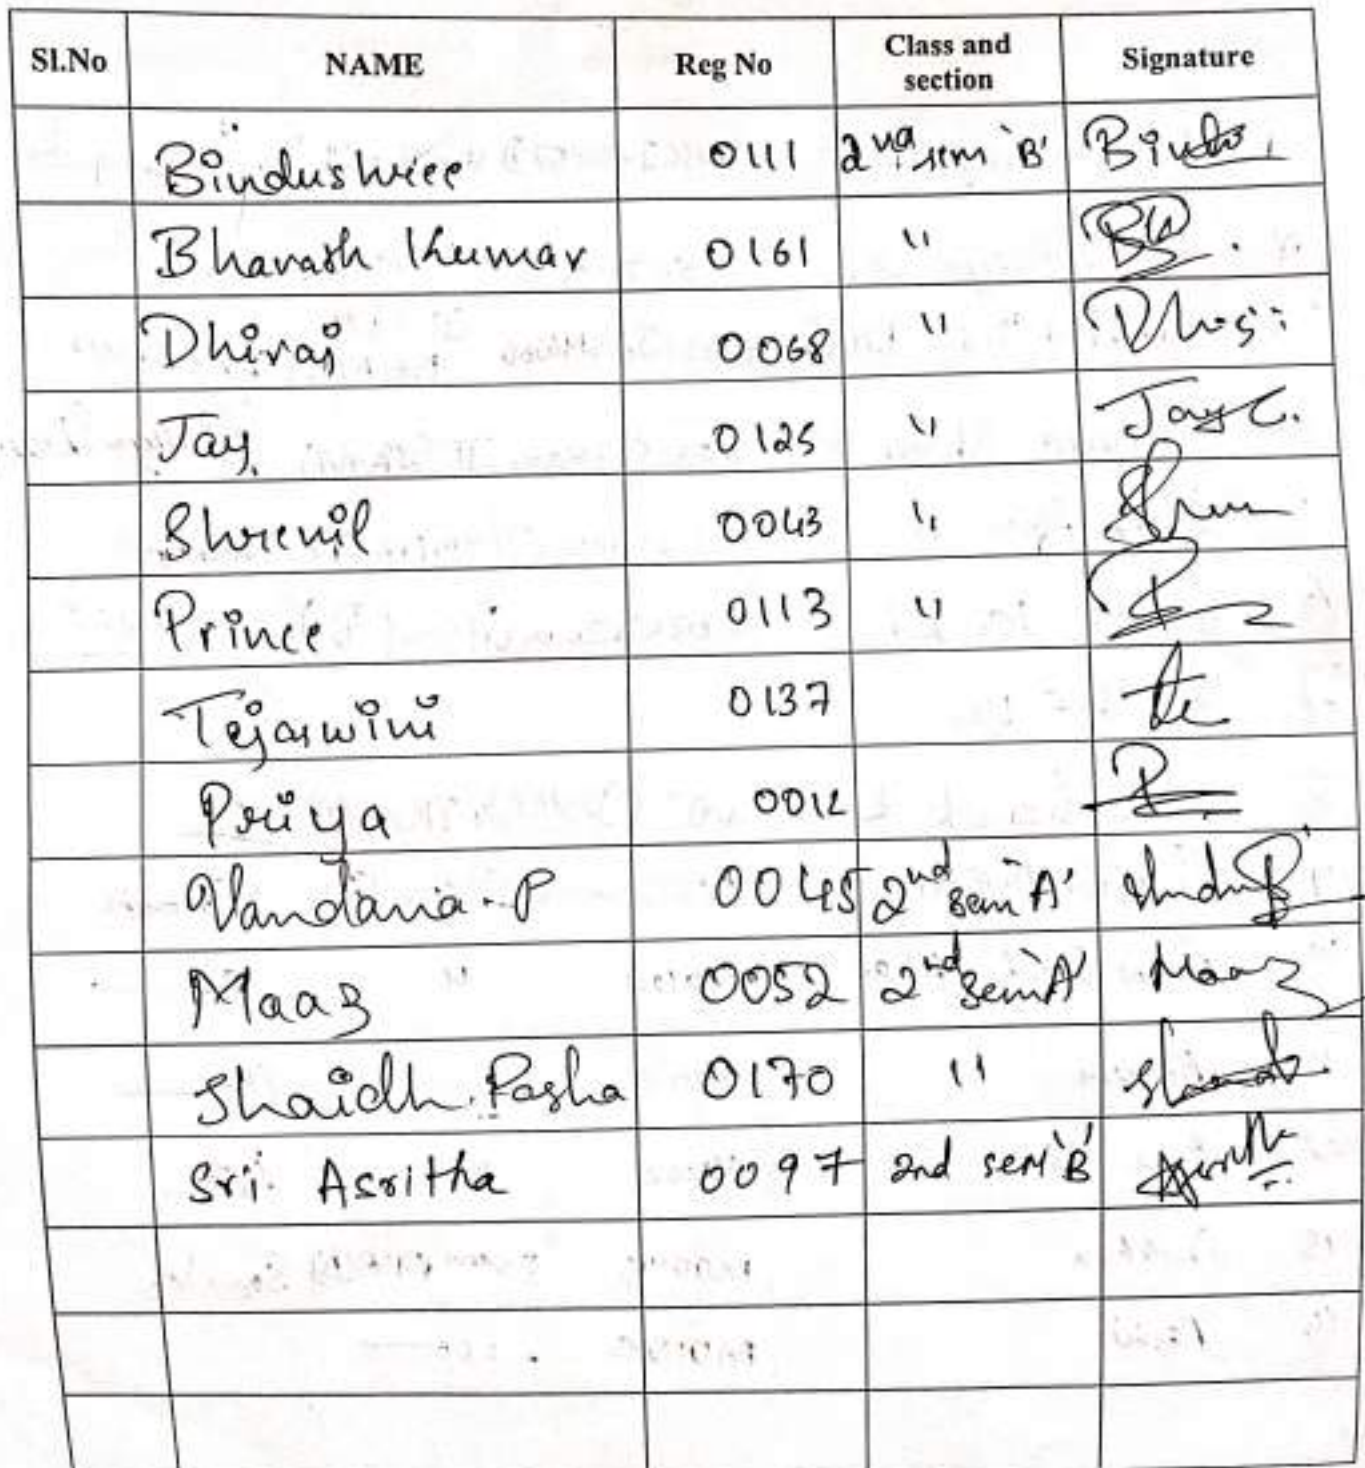 Sl.No NAME Reg No Class and section Signature
Bindushree 0111 2nd sem 'B' Bindu
Bharath Kumar 0161 "
Dhiraj 0068 "
Jay 0125 " Jay C.
Shrenil 0043 "
Prince 0113 "
Tejaswini 0137
Priya 0012
Vandana.P 0045 2nd sem 'A'
Maaz 0052 2nd sem 'A' Maaz
Shaidh.Pasha 0170 "
Sri Asritha 0097 2nd sem 'B'